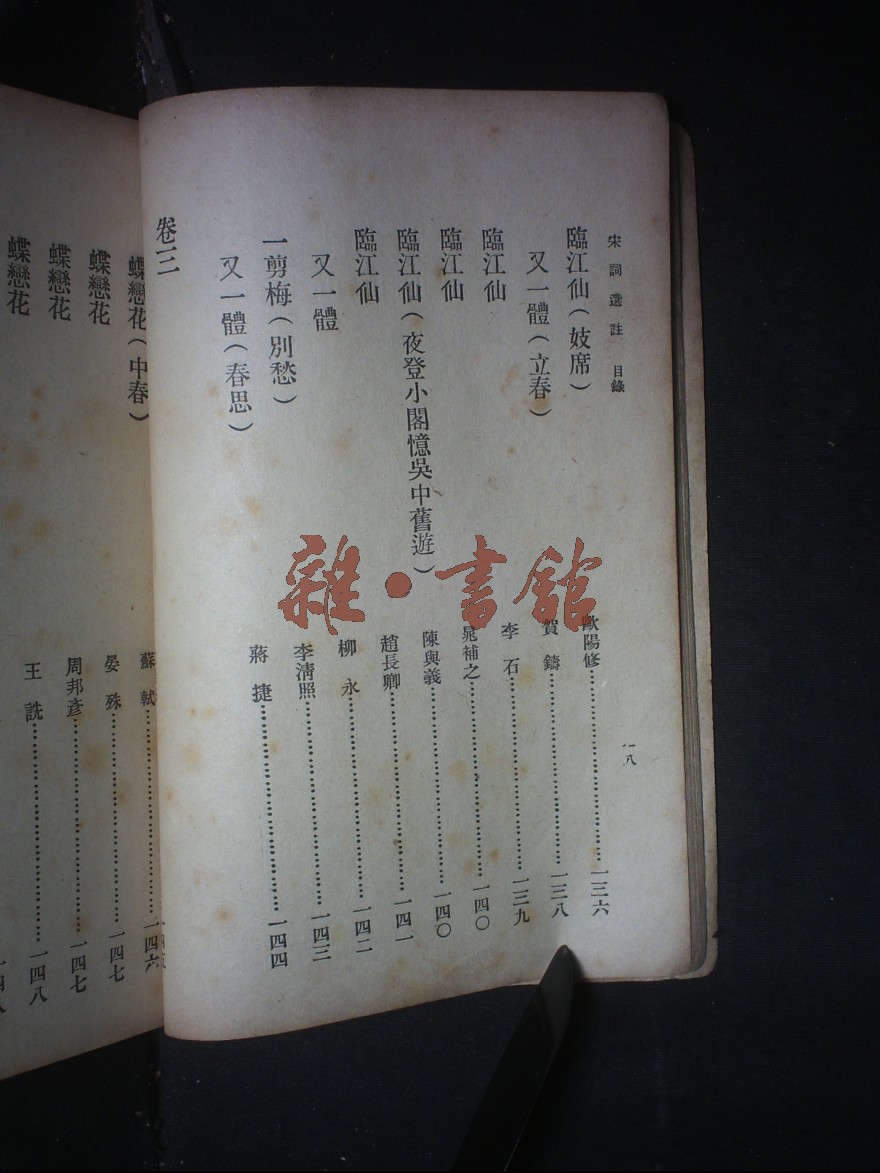 宋詞選註 目錄 一八
臨江仙(妓席) 歐陽修……一三六
又一體(立春) 賀鑄……一三八
臨江仙 李石……一三九
臨江仙 晁補之……一四〇
臨江仙(夜登小閣憶吳中舊遊) 陳與義……一四〇
臨江仙 趙長卿……一四一
又一體 柳永……一四二
一剪梅(別愁) 李清照……一四三
又一體(春思) 蔣捷……一四四
卷三
蝶戀花(中春) 蘇軾……一四六
蝶戀花 晏殊……一四七
蝶戀花 周邦彥……一四七
蝶戀花 王詵……一四八
雜·書館